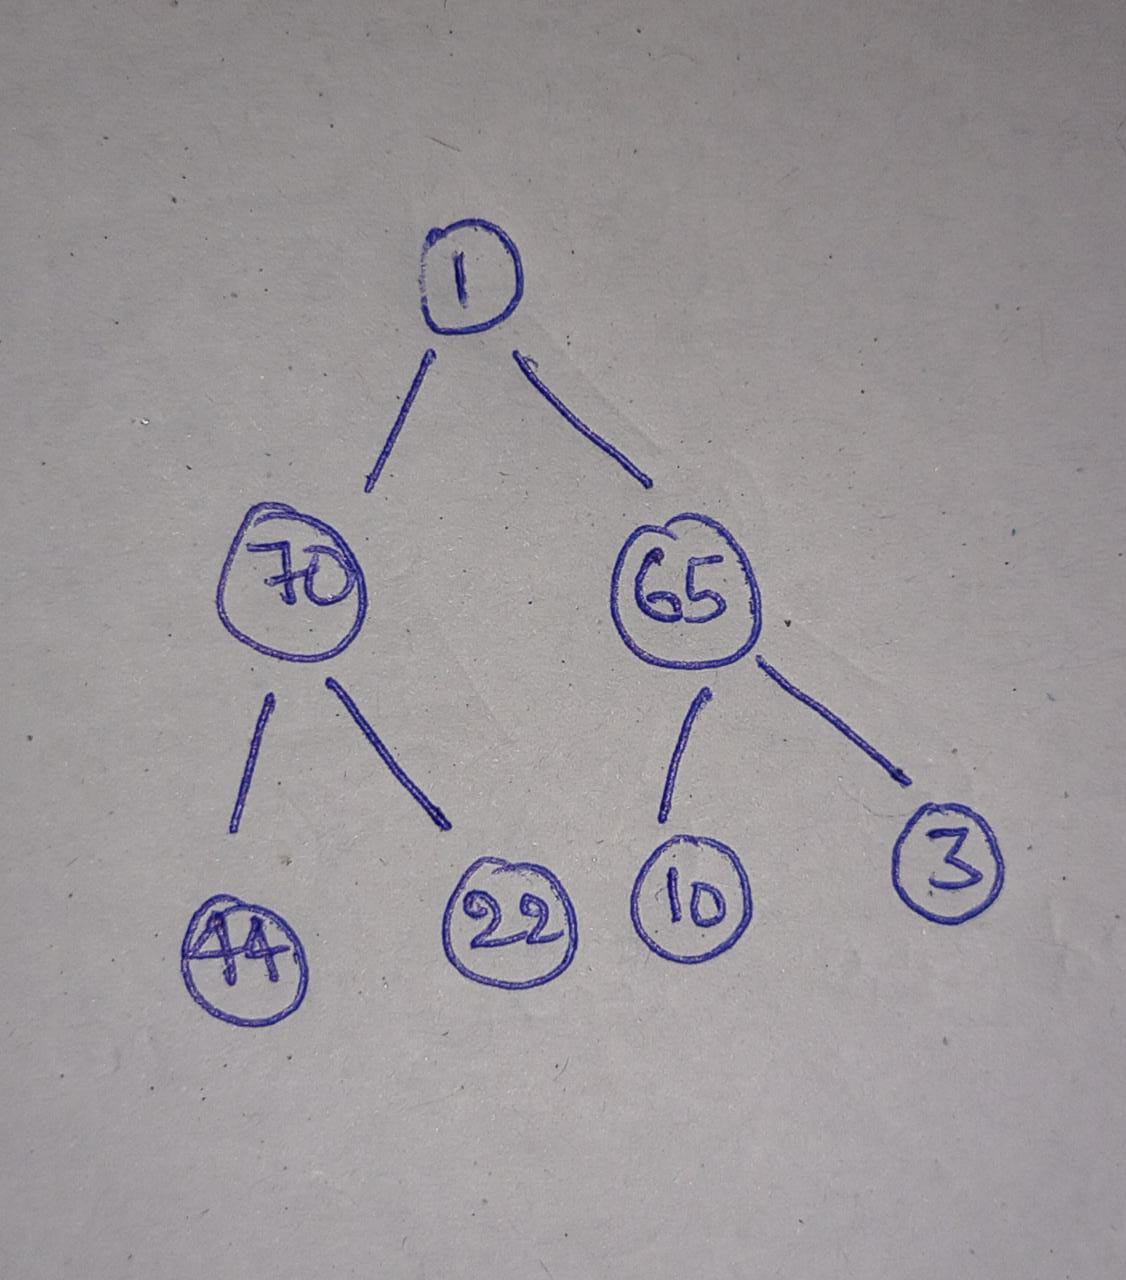 1
70 65
44 22 10 3